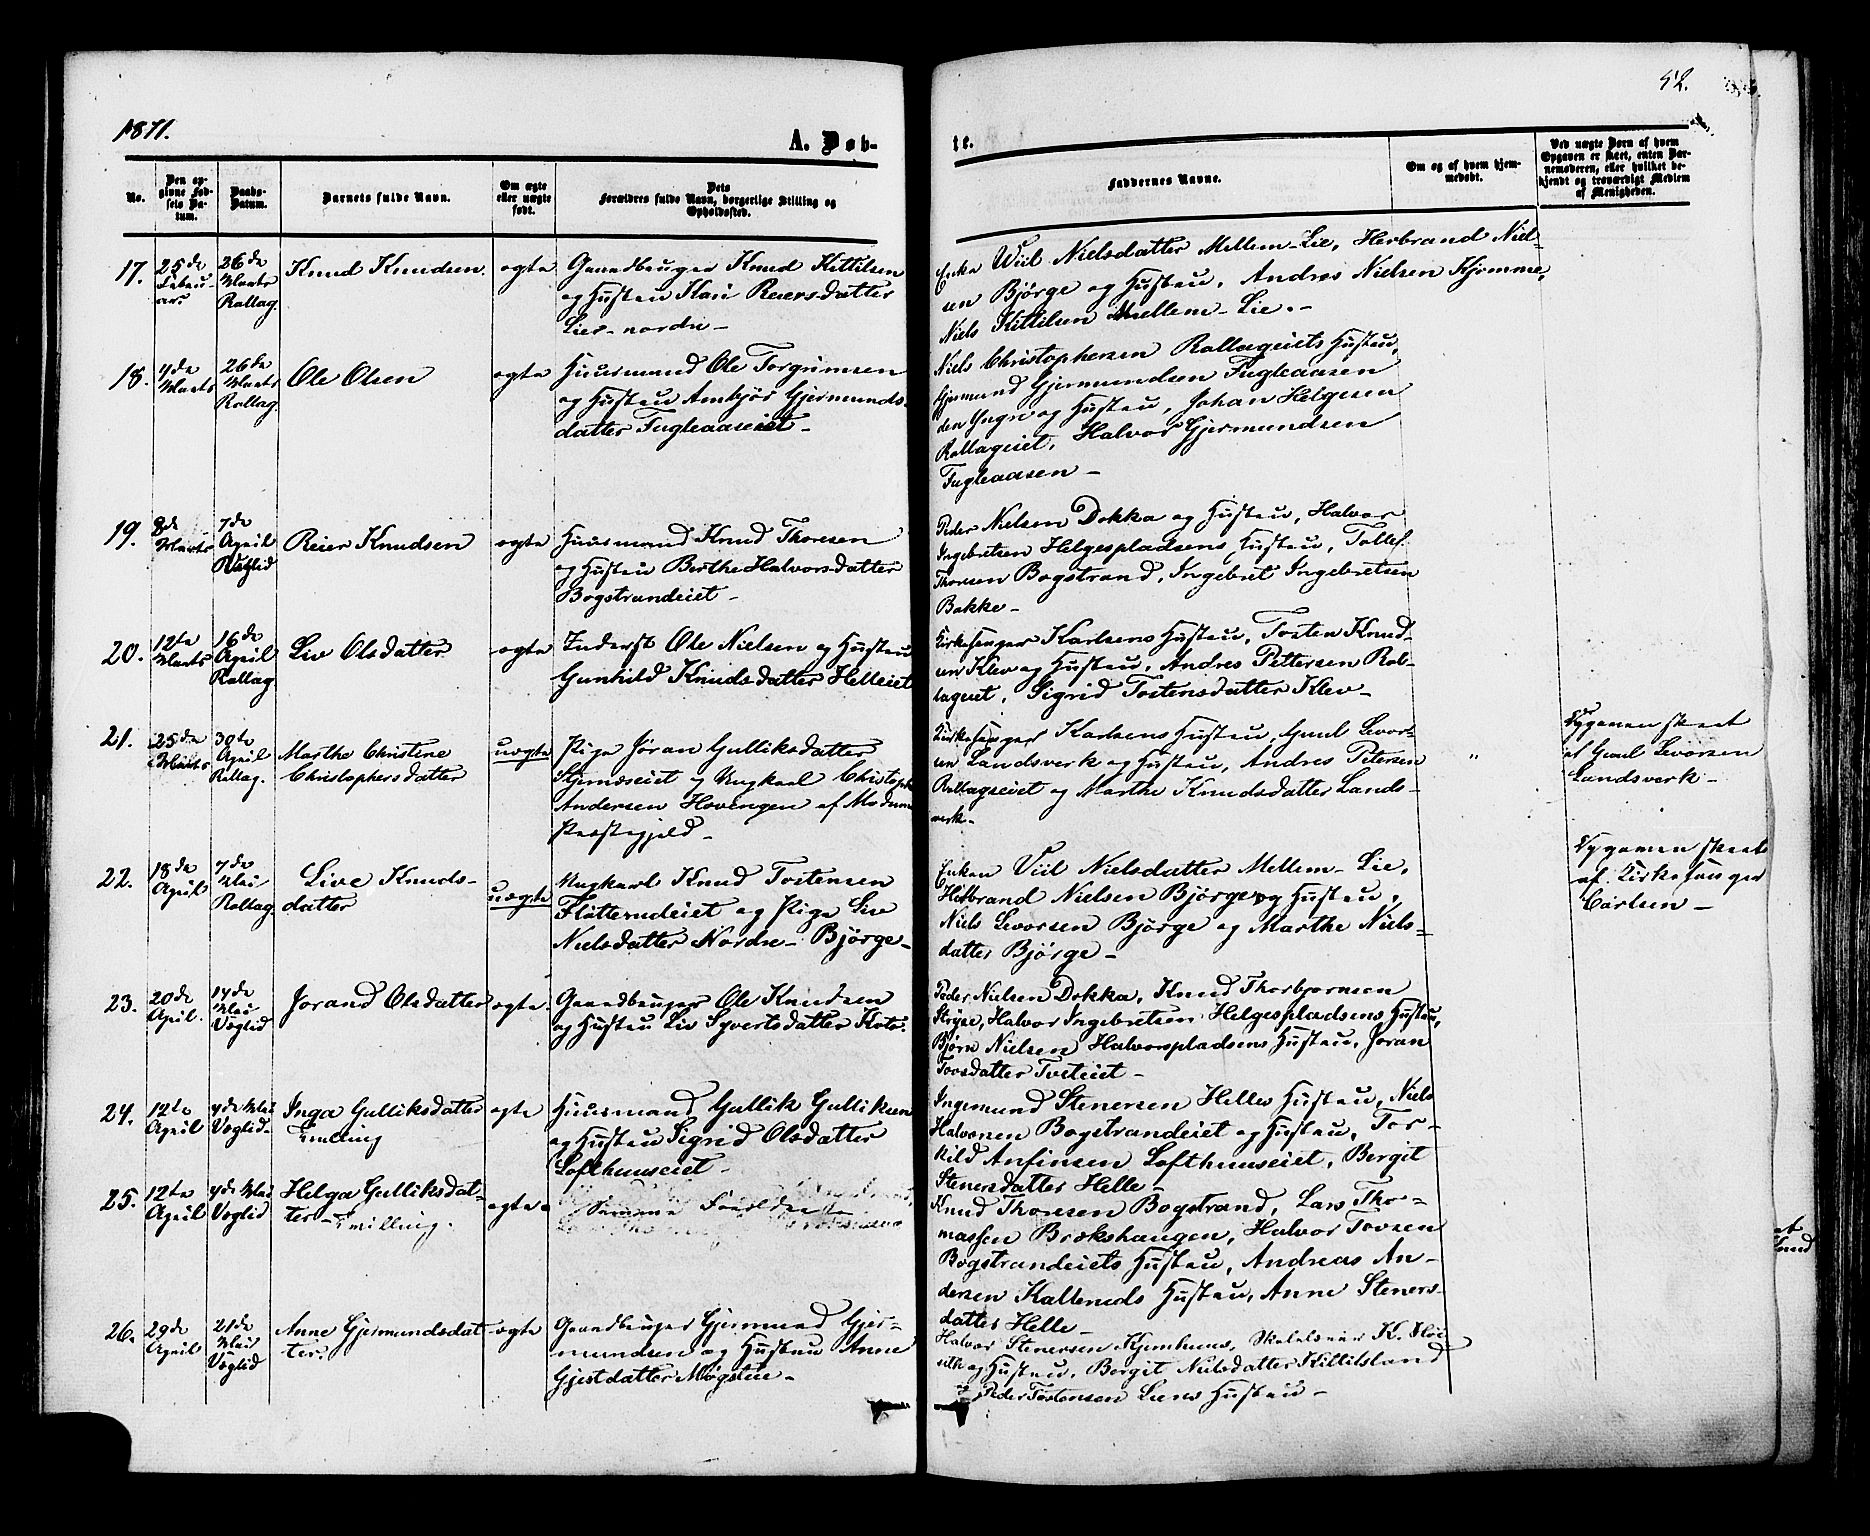 1871.
A. Døb-
te.
52.
No.
Den op-
givne Fød-
sels Da-
tum.
Daabs-
Datum.
Barnets fulde Navn.
Om ægte
eller uægte
født.
Dets
Forældres fulde Navn, borgerlige Stilling og
Opholdssted.
Faddernes Navne.
Om og af hvem hjem-
medøbt.
Ved uægte Børn af hvem
Opgaven er skeet, enten Bar-
nemoderen, eller hvilket be-
kjendt og troværdigt Medlem
af Menigheden.
17.
25de
Februar
26de
Marts
Rollag.
Knud Knudsen
ægte
Gaardbruger Knud Kittilsen
og Hustru Kari Reiersdatter
Lier-nordre -
Enke Viil Nielsdatter Mellem-Lie, Herbrand Niel-
sen Bjørge og Hustru, Andres Nielsen Kjømme,
Niels Kittilsen Mellem-Lie. -
18.
4de
Marts
26de
Marts
Rollag
Ole Olsen
ægte
Huusmand Ole Torgrimsen
og Hustru Ambjør Gjermunds-
datter Fugleaaseiet -
Niels Christophersen Rollageiets Hustru,
Gjermund Gjermundsen Fugleaasen
den Yngre og Hustru, Johan Helgesen
Rollageiet, Halvor Gjermundsen
Fugleaasen -
19.
8de
Marts
7de
April
Reier Knudsen
ægte
Huusmand Knud Thoresen
og Hustru Berthe Halvorsdatter
Bogstrandeiet -
Peder Nielsen Dokka og Hustru, Halvor
Ingebretsen Helgespladsens Hustru, Tollef
Thoresen Bogstrand, Ingebret Ingebretsen
Bakke -
20.
12te
Marts
16de
April
Rollag
Liv Olsdatter
ægte
Inderst Ole Nielsen og Hustru
Gunhild Knudsdatter Helleiet
Kirkesanger Karlsens Hustru, Tosten Knud-
sen Klev og Hustru, Andres Pettersen Rol-
lageiet, Sigrid Tostensdatter Klev -
21.
25de
Marts
30te
April
Rollag.
Marthe Christine
Christophersdatter
uægte
Pige Jøran Gulliksdatter
og Ungkarl Christoph
Andersen Hovengen af Modum
Præstegjeld -
Kirkesanger Karlsens Hustru, Gunul Levor-
sen Landsverk og Hustru, Andres Petersen
Rollagseiet og Marthe Knudsdatter Lands-
verk -
"
Opgaven skeet
af Gunul Levorsen
Landsverk -
22.
18de
April
7de
Mai
Rollag
Live Knuds-
datter
uægte
Ungkarl Knud Tostensen
Fløtterudeiet og Pige Live
Nielsdatter Nordre-Bjørge -
Enken Viil Nielsdatter Mellem-Lie,
Herbrand Nielsen Bjørge og Hustru,
Niels Levorsen Bjørge og Marthe Niels-
datter Bjørge -
Opgaven skeet
af Kirkesanger
Carlsen -
23.
20de
April.
14de
Mai
Veglid
Jorand Olsdatter
ægte
Gaardbruger Ole Knudsen
og Hustru Liv Syvertsdatter
Peder Nielsen Dokka, Knud Thorbjørnsen
Halvor Ingebretsen Helgespladsens Hustru,
Bjørn Nielsen Halvorspladsens Hustru, Joran
Tovsdatter
24.
12te
April
4de Mai
Veglid -
Inga Gulliksdatter
Tvilling
ægte
Huusmand Gullik Gulliksen
og Hustru Sigrid Olsdatter
Lofthuuseiet -
Ingemund Stenersen Helles Hustru, Niels
Halvorsen Bogstrandeiet og Hustru, Tor-
kild Anfinsen Lofthuuseiet, Bergit
Stenersdatter Helle -
25.
12te
April
4de Mai
Veglid
Helga Gulliksdat-
ter - Tvilling.
ægte -
Samme Forældre
Knud Thoresen Bogstrand, Lars Tho-
massen Brækshaugen, Halvor Tovsen
Bogstrandeiets Hustru, Andreas An-
dersen Kalleruds Hustru, Anne Steners-
datter Helle -
26.
29de
April
21de
Mai
Veglid
Anne Gjermundsdat-
ter.
ægte
Gaardbruger Gjermund Gjer-
mundsen og Hustru Anne
Gjestdatter Møgstue -
Halvor Stenersen Kjemhuus, Skolelærer K. Flør
og Hustru, Bergit Nielsdatter Killilsland
Peder Tostensen Liens Hustru -